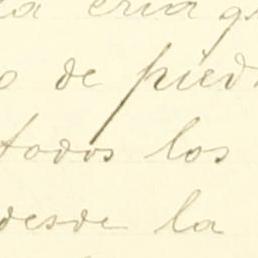 la cria
de pied
todos los
desde la